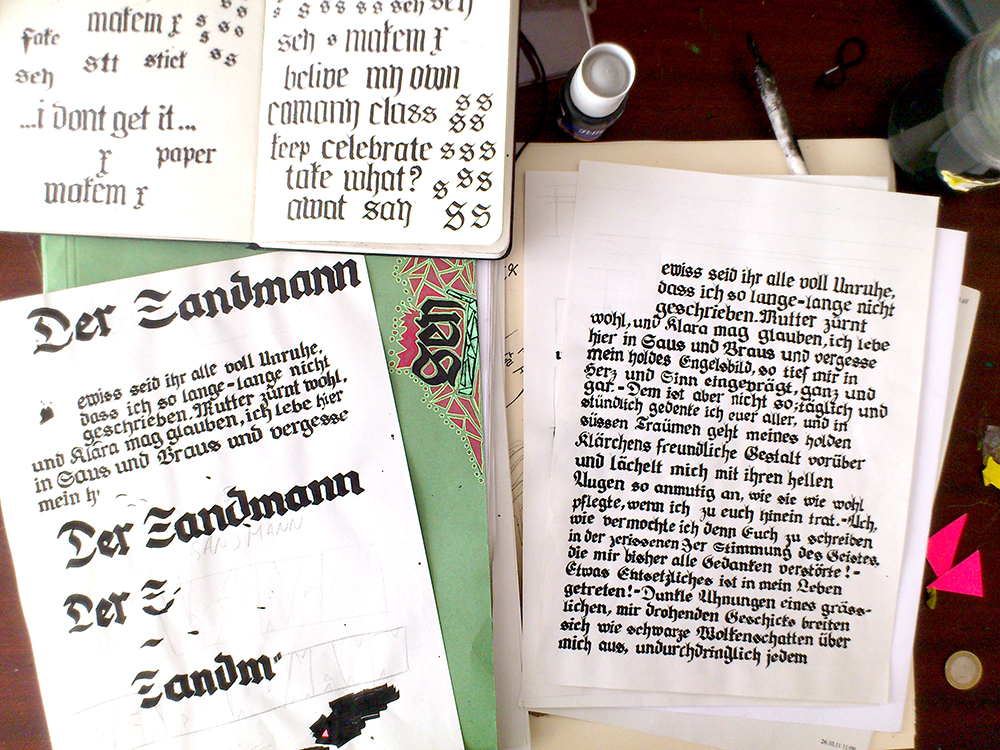 fake makem x s s s
seh stt stick s s
...i dont get it...
x paper
makem x
s s s s s seh seh
seh s makem x
belive my own
comann class ss
ss
keep celebrate sss
take what? s ss
awat say ss
Der Sandmann
ewiss seid ihr alle voll Unruhe,
dass ich so lange-lange nicht
geschrieben. Mutter zürnt wohl,
und Klara mag glauben, ich lebe hier
in Saus und Braus und vergesse
mein h
Der Sandmann
SANDMANN
Der S
Sandm
seh
ewiss seid ihr alle voll Unruhe,
dass ich so lange-lange nicht
geschrieben. Mutter zürnt
wohl, und Klara mag glauben, ich lebe
hier in Saus und Braus und vergesse
mein holdes Engelsbild, so tief mir in
Herz und Sinn eingeprägt, ganz und
gar.- Dem ist aber nicht so; täglich und
stündlich gedenke ich euer aller, und in
süssen Traümen geht meines holden
Klärchens freundliche Gestalt vorüber
und lächelt mich mit ihren hellen
Augen so anmutig an, wie sie wie wohl
pflegte, wenn ich zu euch hinein trat.-Ach,
wie vermochte ich denn Euch zu schreiben
in der zerissenen Zer Stimmung des Geistes,
die mir bisher alle Gedanken verstörte!-
Etwas Entsetzliches ist in mein Leben
getreten!-Dunkle Ahnungen eines gräss-
lichen, mir drohenden Geschicks breiten
sich wie schwarze Wolkenschatten über
mich aus, undurchdringlich jedem
26.10.11 11:09